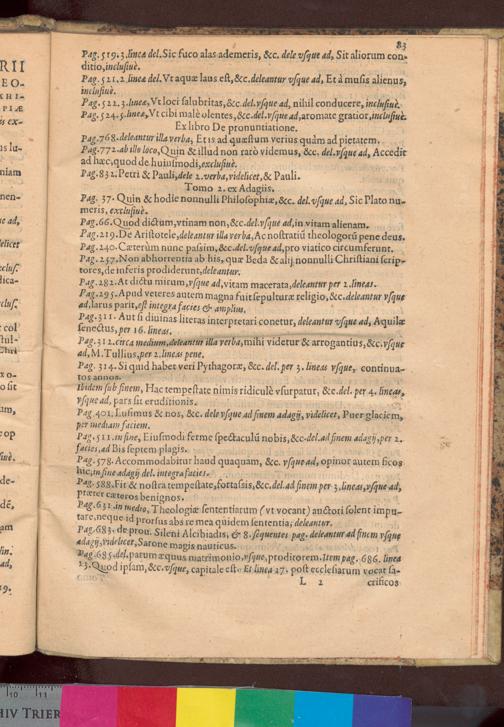 83
Pag. 519.3. linea del. Sic fuco alas ademeris, &c. dele vsque ad, Sit aliorum con-
ditio, inclusiuè.
Pag. 521.2. linea del. Vt aquæ laus est, &c. deleantur vsque ad, Et à musis alienus,
inclusiuè.
Pag. 522.3. linea, Vt loci salubritas, &c. del. vsque ad, nihil conducere, inclusiuè.
Pag. 524.5. linea, Vt cibi malè olentes, &c. del. vsque ad, aromate gratior, inclusiuè.
Ex libro De pronuntiatione.
Pag. 768. deleantur illa verba, Et is ad quæstum verius quàm ad pietatem.
Pag. 772. ab illo loco, Quin & illud non rarò videmus, &c. del. vsque ad, Accedit
ad hæc, quod de huiusmodi, exclusiuè.
Pag. 832. Petri & Pauli, dele 2. verba, videlicet, & Pauli.
Tomo 2. ex Adagiis.
Pag. 37. Quin & hodie nonnulli Philosophiæ, &c. del. vsque ad, Sic Plato nu-
meris, exclusiuè.
Pag. 66. Quod dictum, vtinam non, &c. del. vsque ad, in vitam alienam.
Pag. 219. De Aristotele, deleantur illa verba, Ac nostratiũ theologorũ pene deus.
Pag. 240. Cæterùm nunc passim, &c. del. vsque ad, pro viatico circumferunt.
Pag. 257. Non abhorrentia ab his, quæ Beda & alij nonnulli Christiani scrip-
tores, de inferis prodiderunt, deleantur.
Pag. 282. At dictu mirum, vsque ad, vitam macerata, deleantur per 2. lineas.
Pag. 295. Apud veteres autem magna fuit sepulturæ religio, &c. deleantur vsque
ad, larus parit, est integra facies & amplius.
Pag. 311. Aut si diuinas literas interpretari conetur, deleantur vsque ad, Aquilæ
senectus, per 16. lineas.
Pag. 312. circa medium, deleantur illa verba, mihi videtur & arrogantius, &c. vsque
ad, M. Tullius, per 2. lineas pene.
Pag. 314. Si quid habet veri Pythagoræ, &c. del. per 3. lineas vsque, continua-
tos annos.
Ibidem sub finem, Hac tempestate nimis ridiculè vsurpatur, &c. del. per 4. lineas,
vsque ad, pars sit eruditionis.
Pag. 401. Lusimus & nos, &c. dele vsque ad finem adagij, videlicet, Puer glaciem,
per mediam faciem.
Pag. 511. in fine, Eiusmodi ferme spectaculũ nobis, &c. del. ad finem adagij, per 2.
facies, ad Bis septem plagis.
Pag. 578. Accommodabitur haud quaquam, &c. vsque ad, opinor autem ficos
huc, in fine adagij del. integra facies.
Pag. 588. Fit & nostra tempestate, fortassis, &c. del. ad finem per 3. lineas, vsque ad,
præter cæteros benignos.
Pag. 631. in medio, Theologiæ sententiarum (vt vocant) auctori solent impu-
tare, neque id prorsus abs re mea quidem sententia, deleantur.
Pag. 683. de prou. Sileni Alcibiadis, & 8. sequentes pag. deleantur ad finem vsque
adagij, videlicet, Sarone magis nauticus.
Pag. 685. del. parum æquus matrimonio, vsque, proditorem. Item pag. 686. linea
13. Quod ipsam, &c. vsque, capitale est. Et linea 27. post ecclesiarum vocat sa-
L 2 crificos
RII
EO-
KHI-
PIÆ
is ex-
us lu-
niam
nen-
ue ad,
delicet
exclus.
dica-
clus.
col
Chri
o sit
um,
op
iuè.
de-
dẽ,
am
fin.
ad,
19.
10 11
HIV TRIER